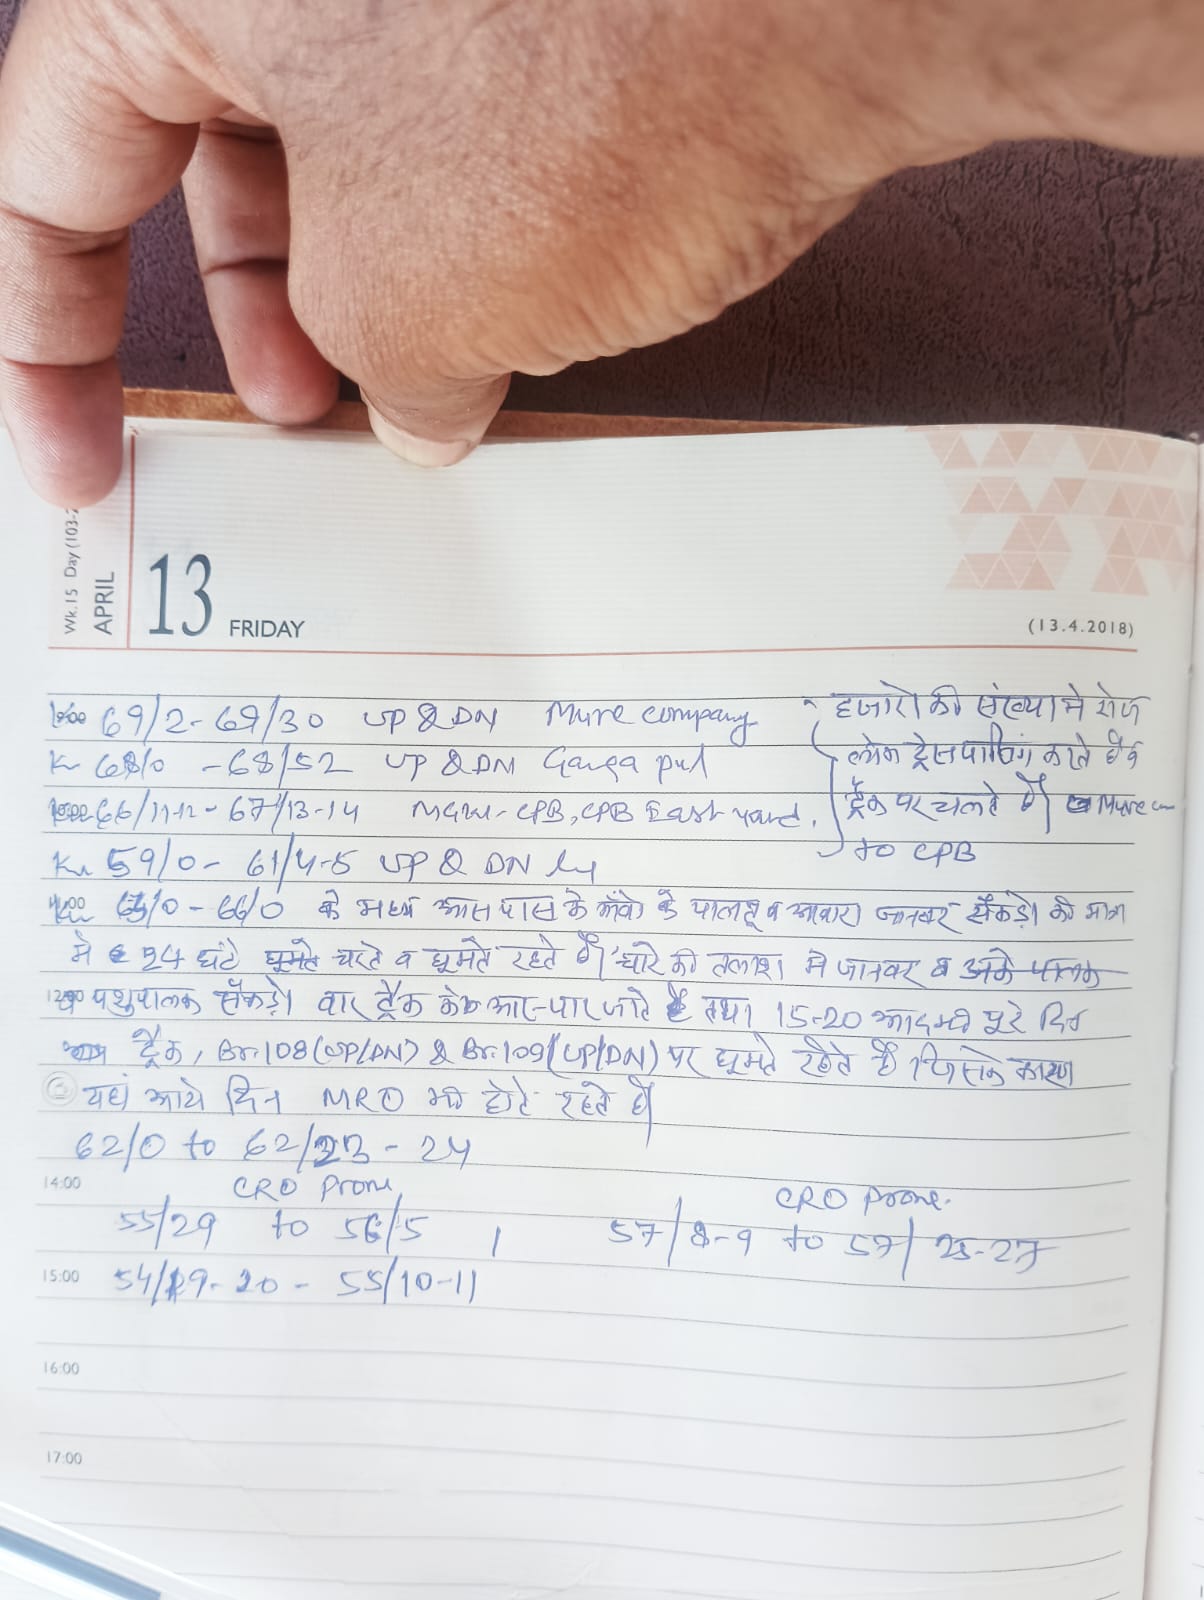 Wk.15 Day (103-2
APRIL
13 FRIDAY
(13.4.2018)
69/2 - 69/30 UP & DN Mure company
Km 68/0 - 68/52 UP & DN Ganga pul
66/11-12 - 67/13-14 CPB, CPB East yard.
Km 59/0 - 61/4-5 UP & DN
हजारो की संख्या मे रोज
लोग ट्रेसपासिंग करते है व
ट्रैक पर चलते है। Mure
to CPB
Km 65/0 - 66/0 के मध्य आस पास के गाँवो के पालतू व आवारा जानवर सैंकड़ो की मात्रा
मे 24 घंटे घूमते चरते व घूमते रहते है। चारे की तलाश मे जानवर व
पशुपालक सैंकड़ो बार ट्रैक के आर-पार जाते है तथा 15-20 आदमी पूरे दिन
ट्रैक, Br. 108 (UP/DN) & Br. 109 (UP/DN) पर घूमते रहते है जिसके कारण
यहां आये दिन MRO भी होते रहते है।
62/0 to 62/23 - 24
14:00
CRO Prone
CRO prone.
55/29 to 56/5
57/8-9 to 57/25-27
15:00
54/19-20 - 55/10-11
16:00
17:00